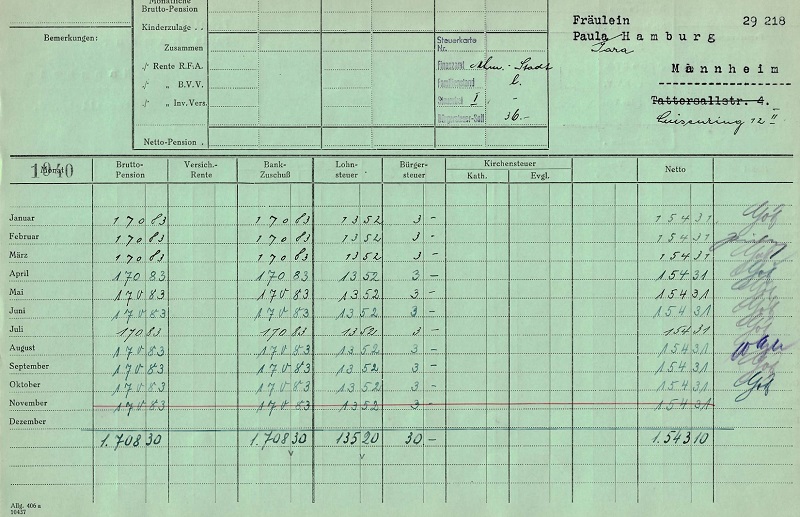 Monatliche
Brutto-Pension
Kinderzulage . .
Zusammen
./· Rente R.F.A.
./· „ B.V.V.
./· „ Inv.Vers.
Netto-Pension .
Bemerkungen:
Steuerkarte
Nr.
Finanzamt Mhm.-Stadt
Familienstand l.
I -
Bürgersteuer-Soll 36.-
Fräulein 29 218
Paula Hamburg
Sara
Mannheim
Tattersallstr. 4.
Luisenring 12 II
1940 Monat Brutto-Pension Versich.-Rente Bank-Zuschuß Lohnsteuer Bürgersteuer Kirchensteuer Kath. Evgl. Netto
Januar 170 83 170 83 13 52 3 - 154 31
Februar 170 83 170 83 13 52 3 - 154 31
März 170 83 170 83 13 52 3 - 154 31
April 170 83 170 83 13 52 3 - 154 31
Mai 170 83 170 83 13 52 3 - 154 31
Juni 170 83 170 83 13 52 3 - 154 31
Juli 170 83 170 83 13 52 3 - 154 31
August 170 83 170 83 13 52 3 - 154 31
September 170 83 170 83 13 52 3 - 154 31
Oktober 170 83 170 83 13 52 3 - 154 31
November 170 83 170 83 13 52 3 - 154 31
Dezember
1.708 30 1.708 30 135 20 30 - 1.543 10
Allg. 406 a
10437